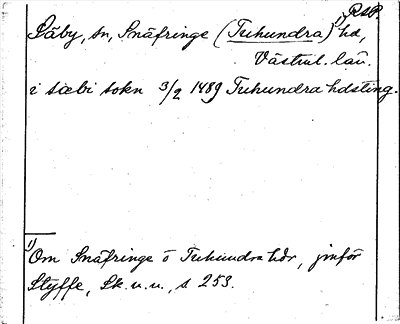 RSP.
Säby, sn, Snäfringe (Tuhundra)¹⁾ hd,
Västml. län.
i sæbi sokn 3/2 1489 Tuhundra hdsting.
¹⁾ Om Snäfringe o Tuhundra hdr, jmför
Styffe, Sk. u. u., s 253.